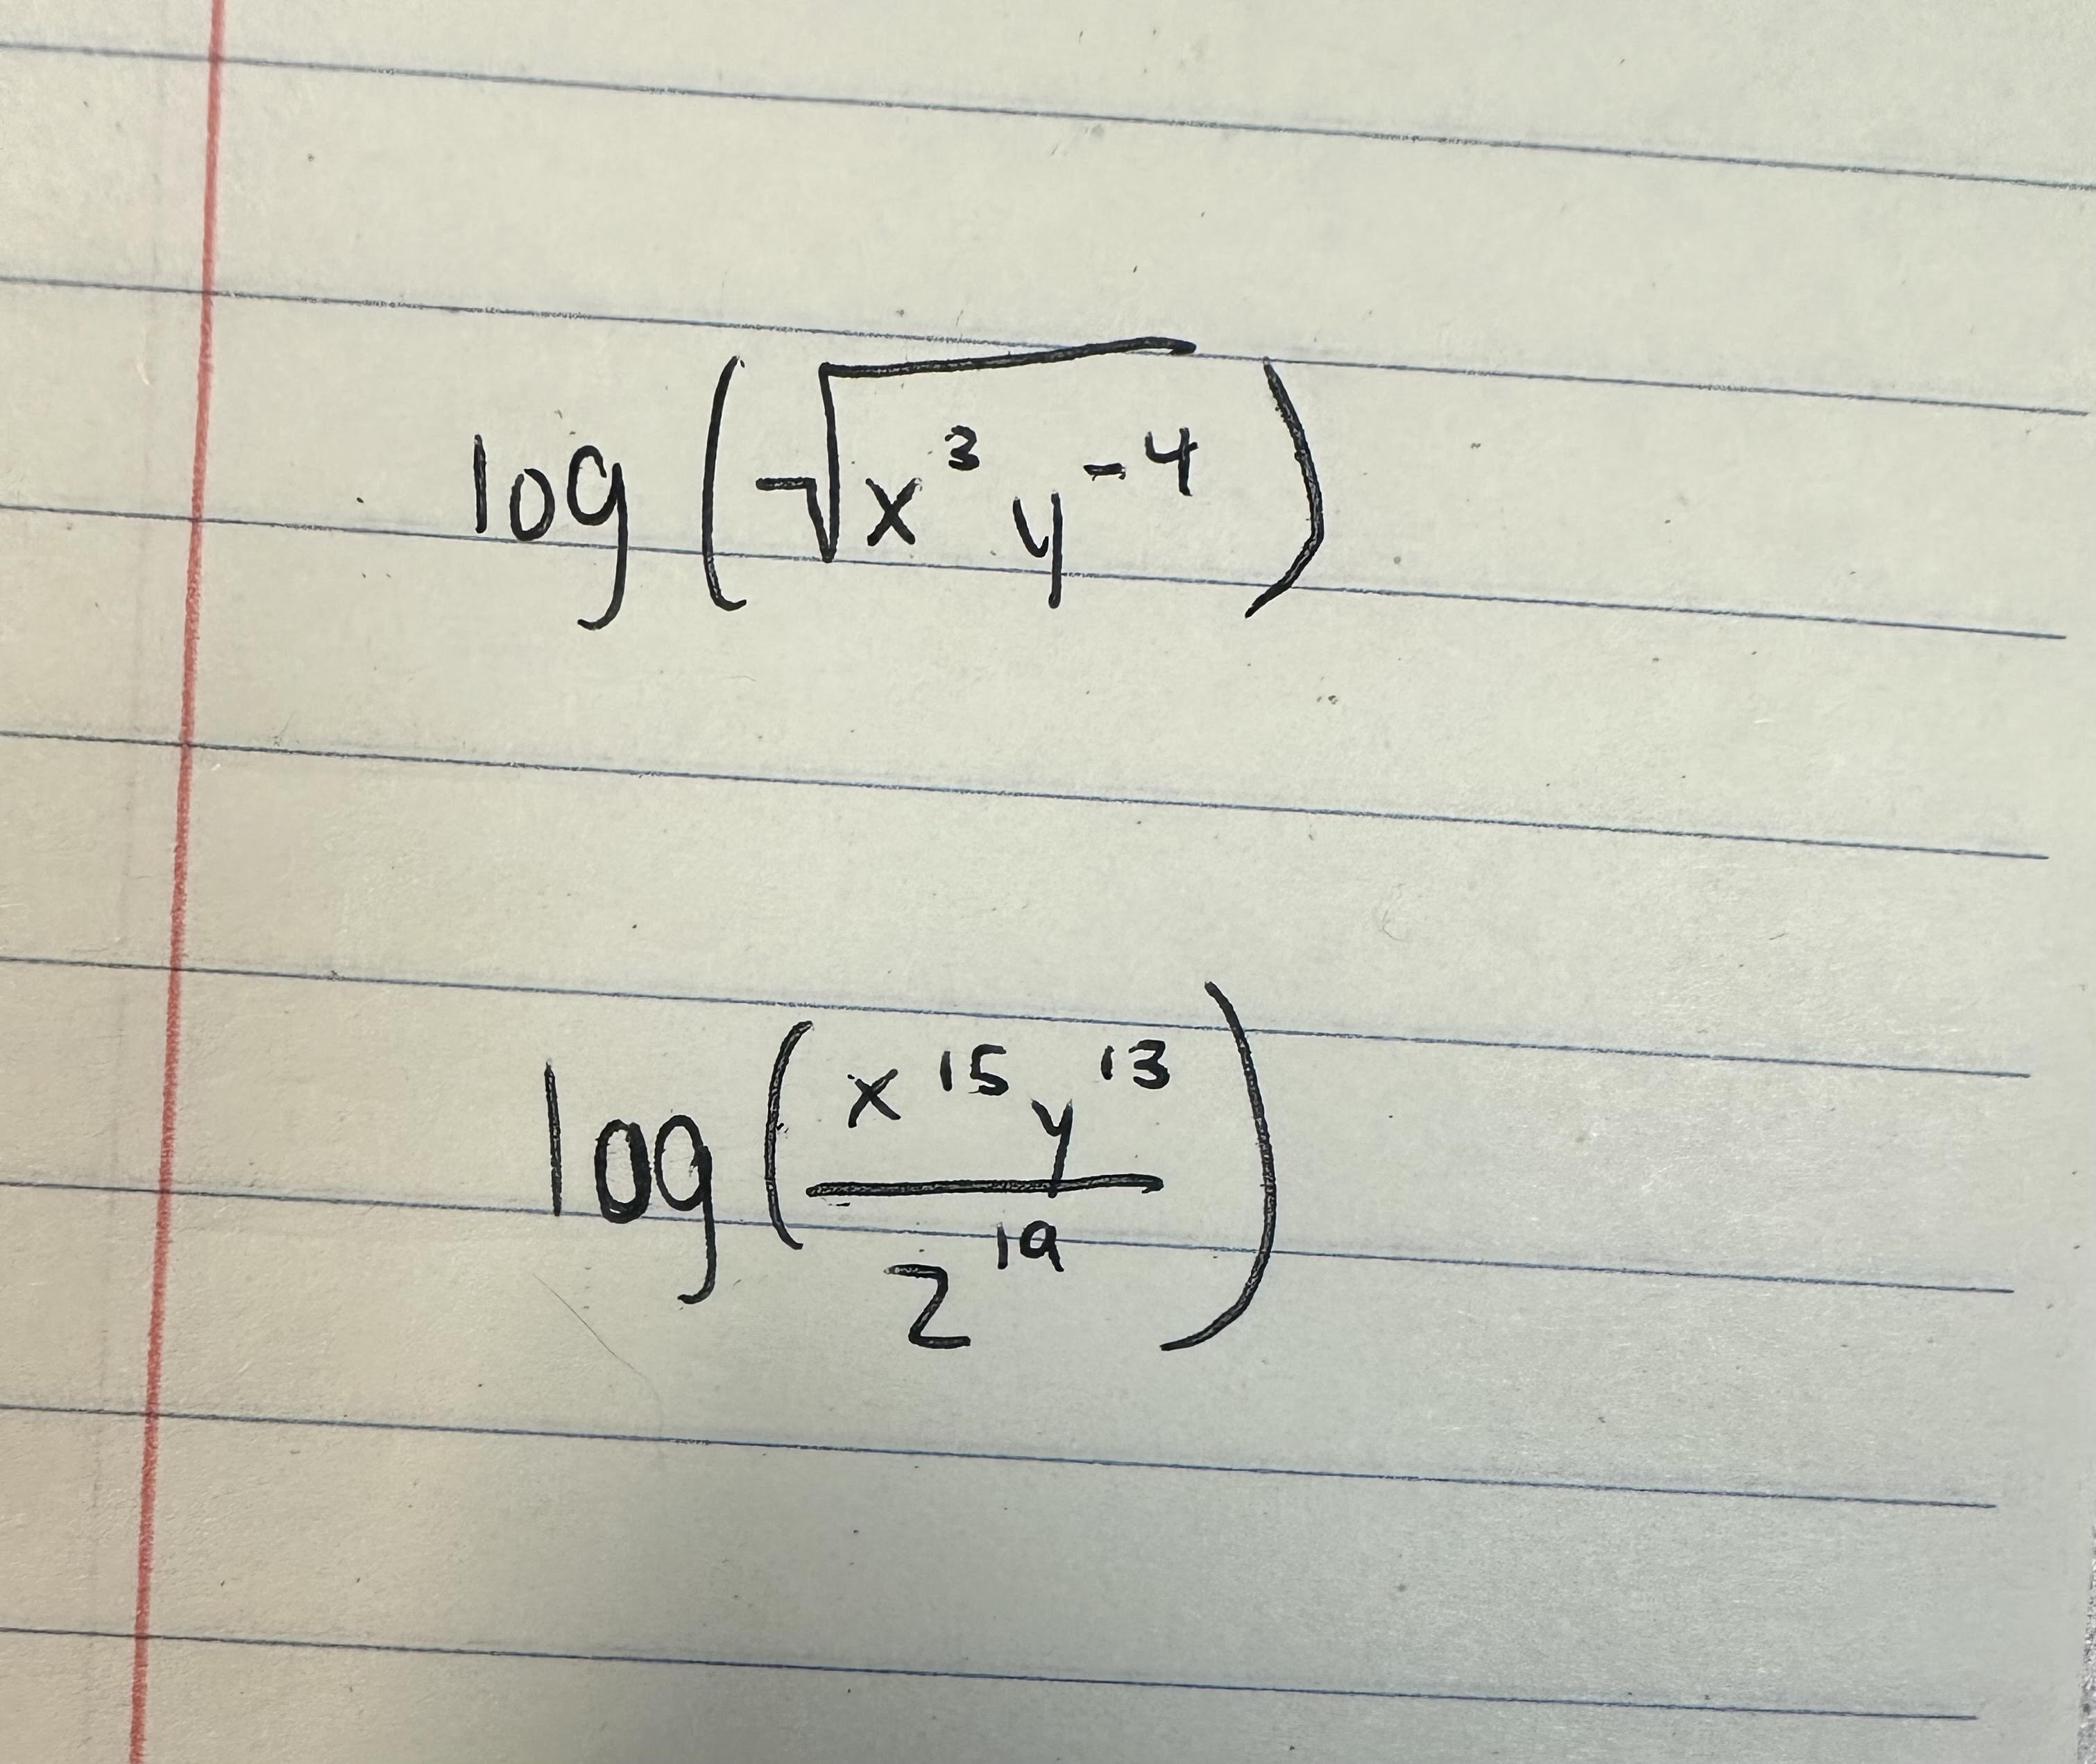 log(√x³y⁻⁴)
log(x¹⁵y¹³/z¹⁹)